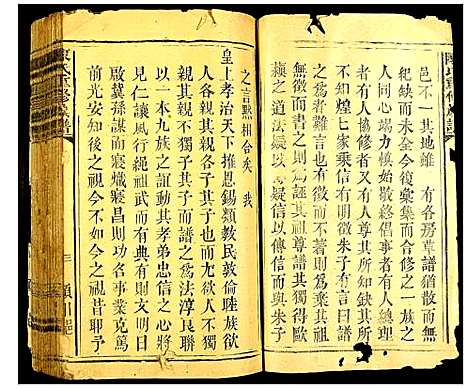 邑不一其地雖 有各房草譜猶散而無
紀缺而未全今復彙集而合修之一族之
人同心端力樂始敬終倡事者有人總理
者有人協修者有人尊其所知缺其所
不知煌煌七家乘信有明徵朱子有曰譜
之為者難言也有徵而不書則為棄其祖
無徵而書之則為誣其祖尊譜其獨得歐
蘇之道法嚴以為疑信以傳信而與朱子
之言默相合矣 我
皇上孝治天下推恩錫類教民敦倫睦族欲
人各親其親各子其子而也尤欲人不獨
親其親不獨子其子而譜之為法淳良聯
以一本九族之誼動其孝弟忠信之心將
見仁讓風行繩祖武而有典有則文明日
啟冀孫謀而寢熾寢昌則功名事業克篤
前光安知後之視今不猶今之視昔耶予
三 潁川郡